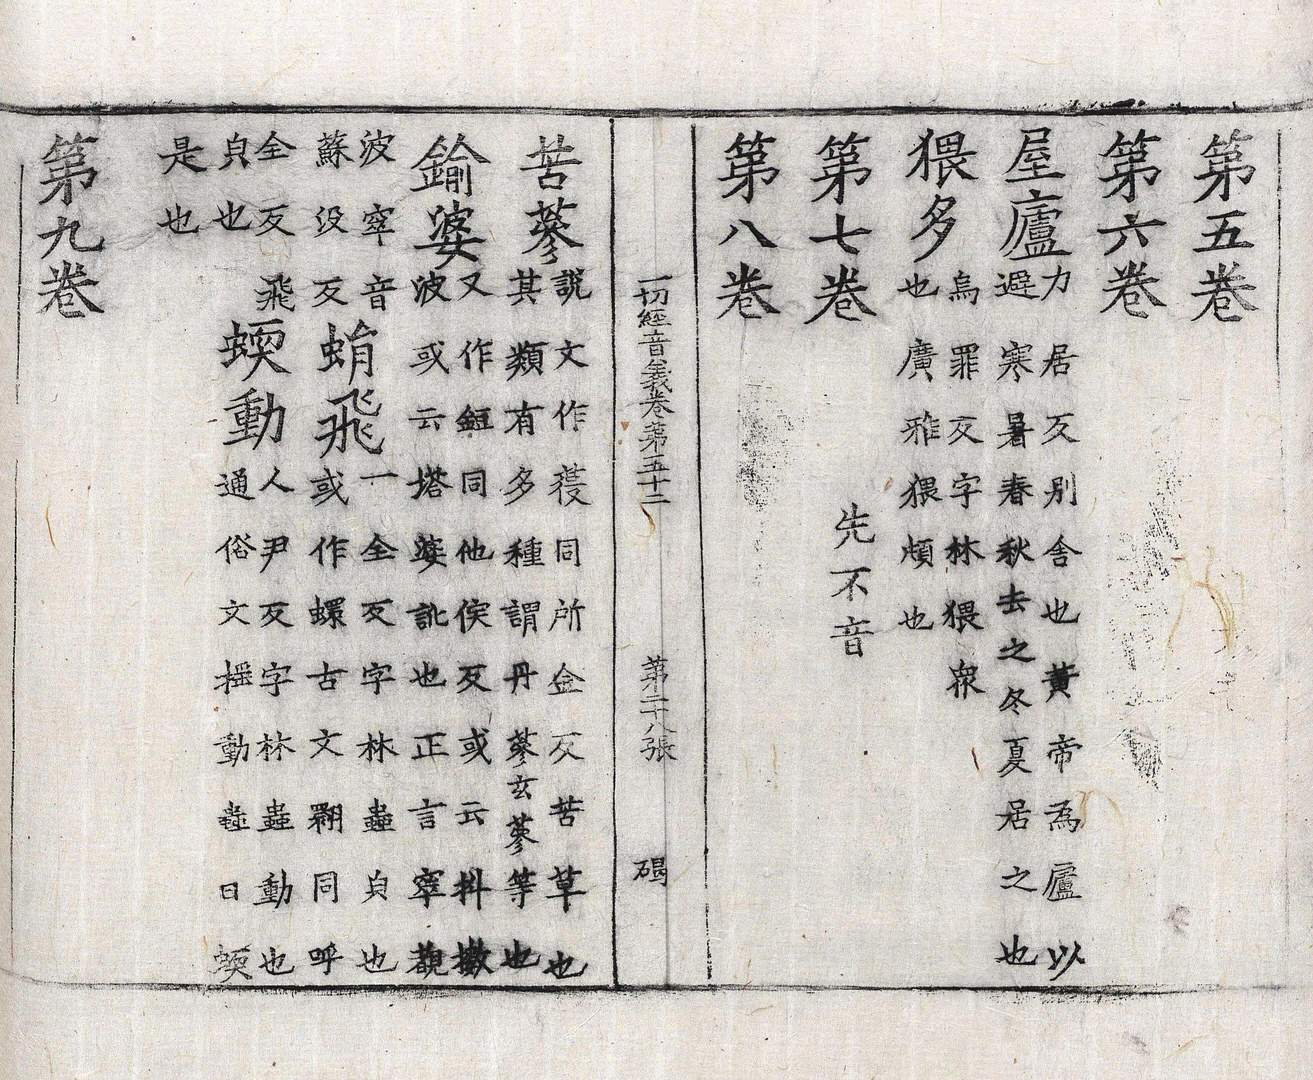 第五卷
第六卷
屋廬
力居反別舍也黃帝爲廬以
避寒暑春秋去之冬夏居之也
猥多
烏罪反字林猥衆
也廣雅猥頓也
第七卷
先不音
第八卷
一切經音義卷第五十二
第二十八張
碣
苦蔘
說文作葠同所金反苦草也
其類有多種謂丹蔘玄蔘等也
鍮婆
又作鋀同他侯反或云抖擻
波或云塔婆訛也正言窣覩
波窣音
蘇沒反
蜎飛
一全反字林蟲貞也
或作蠉古文翾同呼
全反飛
貞也
蝡動
人尹反字林蟲動也
通俗文搖動蟲曰蝡
是也
第九卷